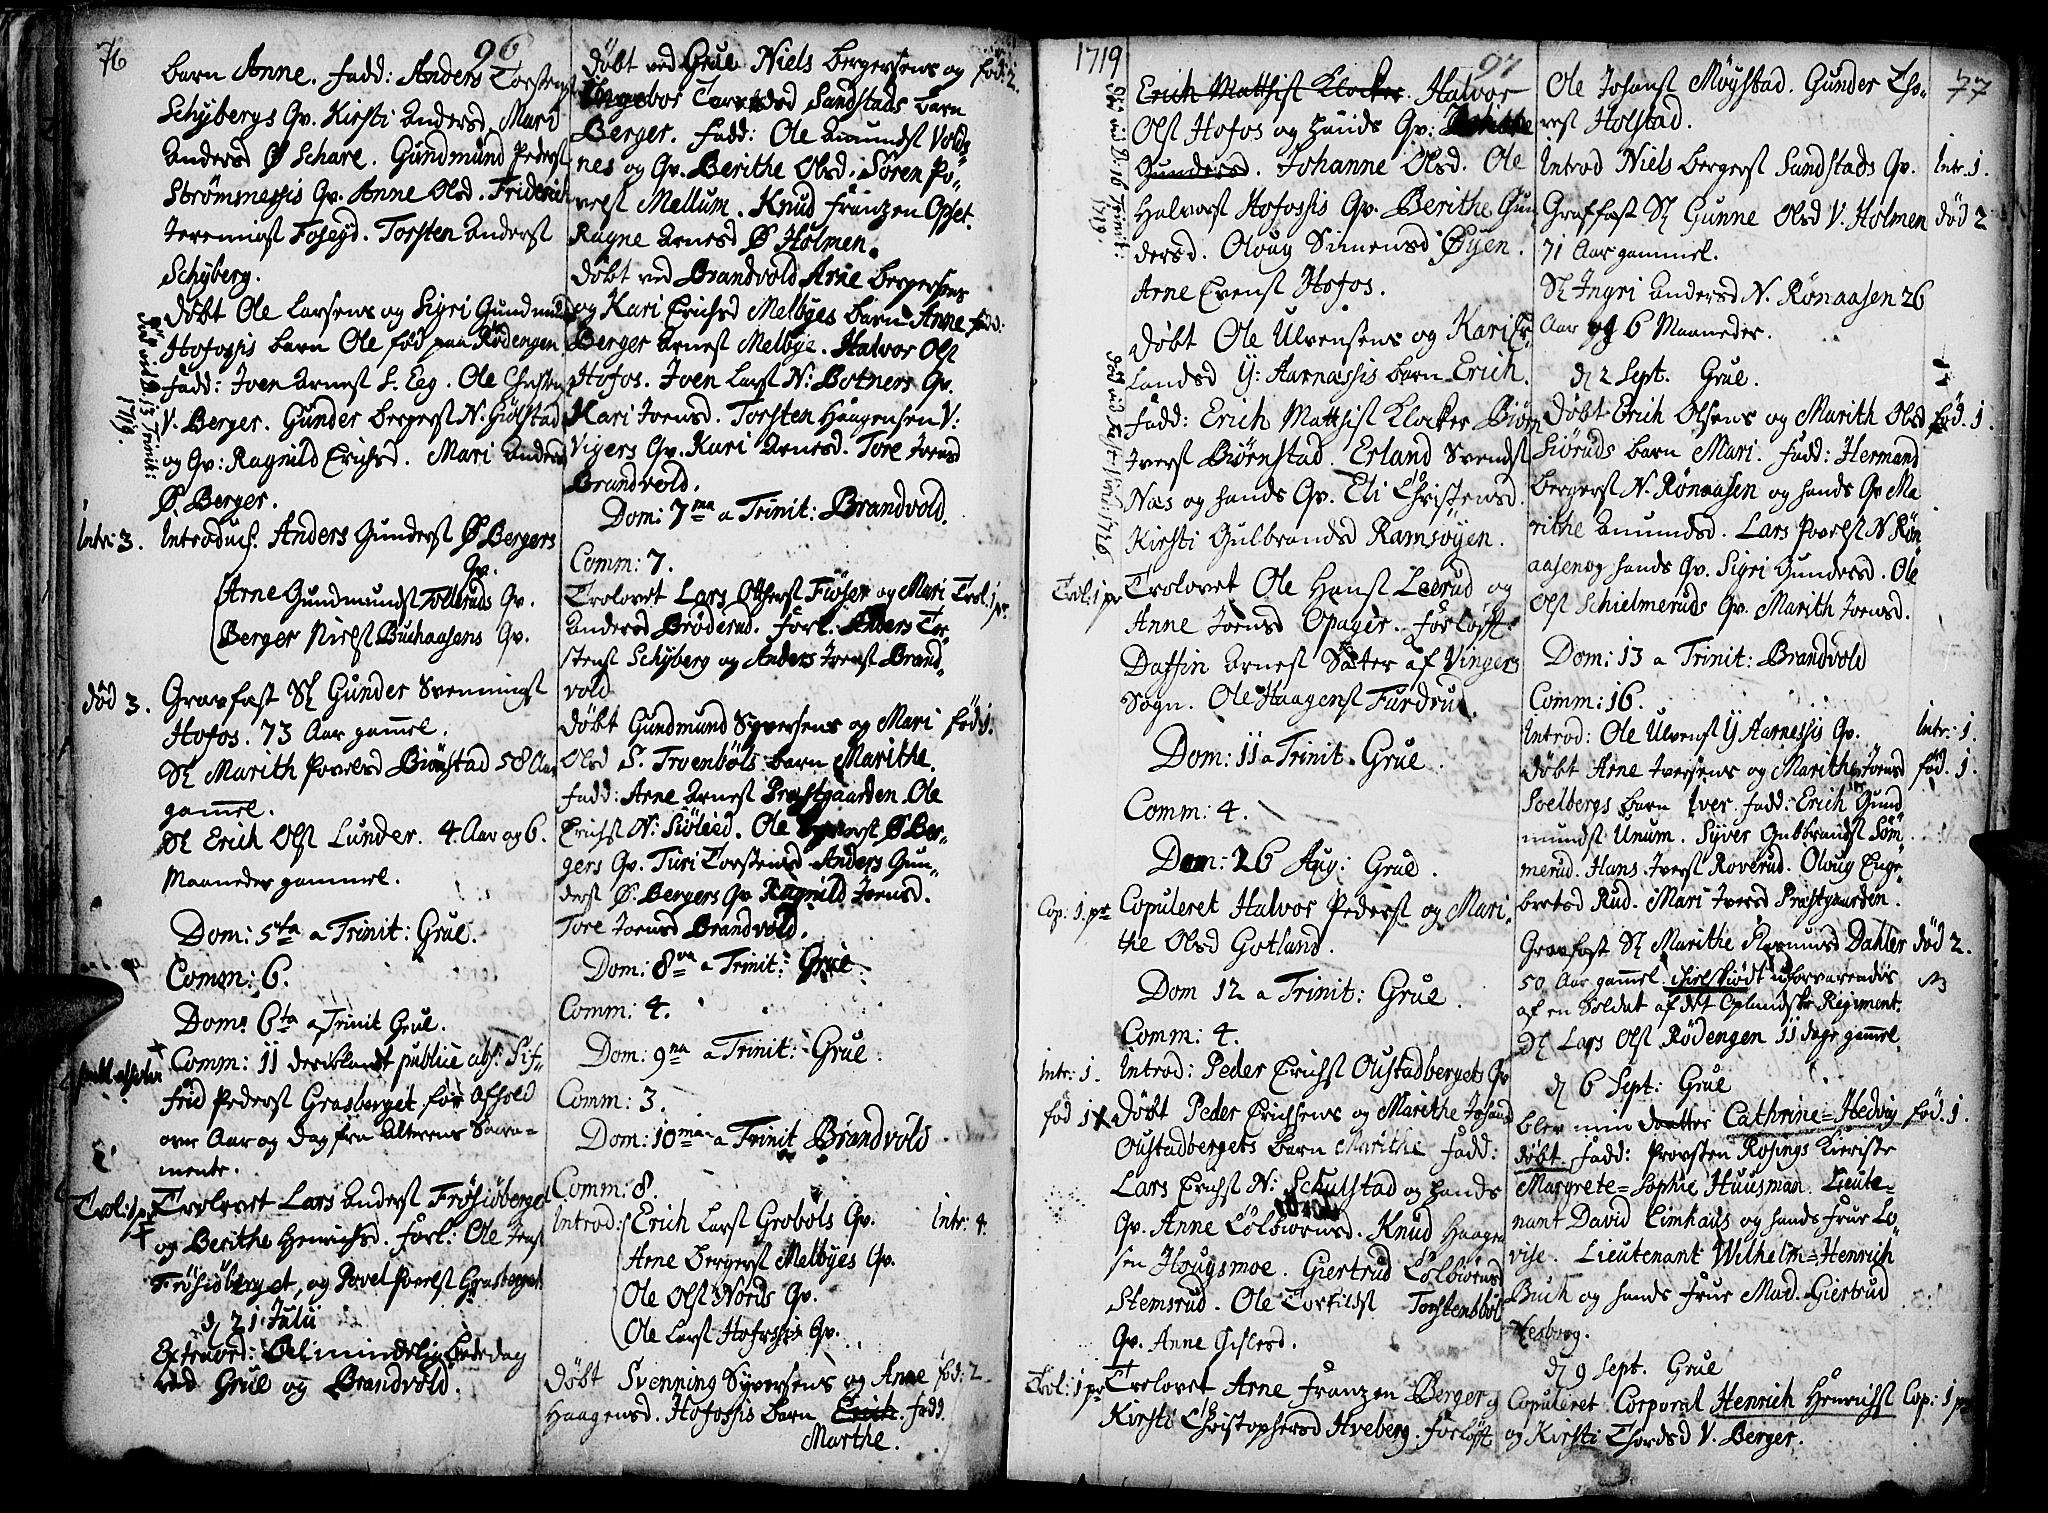 76
96
barn Anne. Fadd: Anders Torstens
Schybergs Qv. Kirsti Andersd. Mari
Andersd Ø Schare. Gundmund Peders
Strömnessis Qv. Anne Olsd. Friderich
Jeremiass Foseyd. Torsten Anderss
Schyberg.
Döbt Ole Larsens og Sigri Gundmunds
Hofossis barn Ole föd paa Rödengen
Fadd: Joen Arness S. Eeg. Ole Christens
V. Berger. Gunder Bergerss N: Gjölstad
og Qv: Ragnild Erichsd. Mari Andersd
Ø. Berger.
Död vid D: 13 Trinit: 1719.
Intr: 3. Introduc. Anders Gunderss Ø Bergers
Qv.
Arne Gundmunds Tolleruds Qv.
Berger Nielss Buchaasens Qv.
död 3. Gravfæst Sl Gunder Svenningss
Hofos. 73 Aar gammel.
Sl Marith Povelsd Biörnstad 58 Aar
gammel.
Sl Erich Olss Lunder. 4 Aar og 6.
Maaneder gammel.
Dom: 5ta a Trinit: Grue.
Comm: 6.
Dom: 6ta a Trinit Grue.
Comm: 11 deriblandt publice abs: Sif-
frid Pederss Grasberget for Afhold
over Aar og Dag fra Alterens Sacra-
mente.
Trol: 1 pr Trolovet Lars Anderss Frösiöberget
og Berithe Henrichsd. Forl: Ole Jenss
Frösiöberget, og Povel Povelss Grasberget
d 21 Julii
Extraord: Almindelig Bededag
ved Grue og Brandvold.
Döbt ved Grue Niels Bergersens og föd: 2.
Ingebor Taraldsd Sandstads barn
Berger. Fadd: Ole Amundss Vold-
nes og Qv. Berithe Olsd. Sören Po-
velss Mellum. Knud Franzen Opset.
Ragne Arnesd Ø Holmen.
Döbt ved Brandvold Arne Bergersens
og Kari Erichsd Melbyes barn Anne fadd:
Berger Arness Melbye. Halvor Olss
Hofos. Joen Larss N: Botners Qv.
Kari Joensd. Torsten Haagensen V:
Vigers Qv. Kari Arnesd. Tore Joensd
Brandvold.
Dom: 7ma a Trinit: Brandvold.
Comm: 7.
Trolovet Lars Otterss Fiöser og Mari Trol: 1 pr.
Andersd Bröderud. Forl: Anders Tor-
stenss Schyberg og Anders Joenss Brand-
vold
Döbt Gundmund Syversens og Mari föd 1.
Olsd S. Troenböls barn Marithe.
Fadd: Arne Arness Præstgaarden. Ole
Erichss N: Siöleed. Ole Syverss Ø Ber-
gers Qv. Turi Torstensd. Anders Gun-
derss Ø. Bergers Qv. Ragnild Joensd.
Tore Joensd Brandvold.
Dom: 8va a Trinit: Grue.
Comm: 4.
Dom: 9na a Trinit: Grue.
Comm: 3.
Dom: 10ma a Trinit Brandvold
Comm: 8.
Introd: Erich Larss Groböls Qv. Intr: 4.
Arne Bergerss Melbyes Qv.
Ole Olss Nords Qv.
Ole Larss Hofossis Qv.
Döbt Svenning Syversens og Anne föd: 2.
Haagensd. Hofossis barn Erich. Fadd.
Marthe.
1719
97
77
Erich Matthiss Klocker. Halvor
Olss Hofos og hands Qv: Berithe
Gundersd. Johanne Olsd. Ole
Halvorss Hofossis Qv. Berithe Gun-
dersd. Oloug Simensd Öyen.
Arne Evenss Hofos.
Döbt Ole Ulvensens og Kari Er-
landsd Y: Aarnessis barn Erich.
Fadd: Erich Matthiss Klocker Biörn
Iverss Biörnstad. Erland Svendss
Næs og hands Qv. Eli Christensd.
Kirsti Gulbrandsd Ramsöyen.
Trol: 1 pr Trolovet Ole Hanss Leerud og
Anne Joensd Opager. Forlöfft
Daffin Arness Sæter af Vinger
Sogn. Ole Haagenss Furdrud.
Dom: 11 a Trinit. Grue.
Comm: 4.
Dom: 26 Aug: Grue.
Cop: 1. pr Copuleret Halvor Pederss og Mari-
the Olsd Gotland.
Dom 12 a Trinit: Grue.
Comm: 4.
Intr: 1. Introd: Peder Erichss Oustadbergets Qv
föd 1 Döbt Peder Erichsens og Marithe Johansd
Oustadbergets barn Marithe Fadd:
Lars Erichss N: Schulstad og hands
Qv. Anne Colbiörnsd. Knud Haagen
sen Hougsmoe. Giertrud Colbiörnsd
Stemsrud. Ole Torkildss Torstensböl
Qv. Anne Gislersd.
Trol: 1 pr Trolovet Arne Franzen Berger og
Kirsti Christophersd Hveberg. Forlöfft
Ole Johanss Möystad. Gunder Tho-
ress Holstad.
Introd Niels Bergerss Sandstads Qv. Intr. 1.
Graffæst Sl Gunne Olsd V. Holmen död 2
71 Aar gammel.
Sl Ingri Andersd N. Rönaasen 26
Aar og 6 Maaneder.
d 2 Sept. Grue.
Döbt Erich Olsens og Marith Olsd föd. 1.
Siöruds barn Mari. Fadd: Hermand
Bergerss N. Rönaasen og hands Qv Ma
rithe Amundsd. Lars Povelss N Rön-
aasen og hands Qv. Sigri Gundersd. Ole
Olss Schielmeruds Qv. Marith Joensd.
Dom: 13 a Trinit: Brandvold
Comm: 16.
Introd: Ole Ulvenss Y Aarnessis Qv. Intr: 1.
Döbt Arne Iversens og Marithe Joensd föd. 1.
Soelbergs barn Iver. Fadd: Erich Gund
mundss Unum. Syver Gulbrandss Söm
merud. Hans Iverss Roverud. Oloug Enge-
bretsd Rud. Mari Iversd Præstgaarden.
Gravfæst Sl Marithe Rasmusd Dahler död 2.
50 Aar gammel. ihielsködt uforvarendis
af en Soldat af det Oplandske Regiment.
Sl Lars Olss Rödengen 11 dage gammel.
d 6 Sept: Grue
blev min Daatter Cathrine=Hedvig föd. 1.
döbt. Fadd: Provsten Rosings Kieriste
Margrete=Sophie Huusman. Lieute-
nant David Eimhaus og hands Frue Lo-
vise. Lieutenant Wilhelm=Henrich
Buch og hands Frue Mad. Giertrud
Hesborg.
d 9 Sept. Grue
Copuleret Corporal Henrich Henrichss Cop: 1 pr
og Kirsti Thordsd V. Berger.